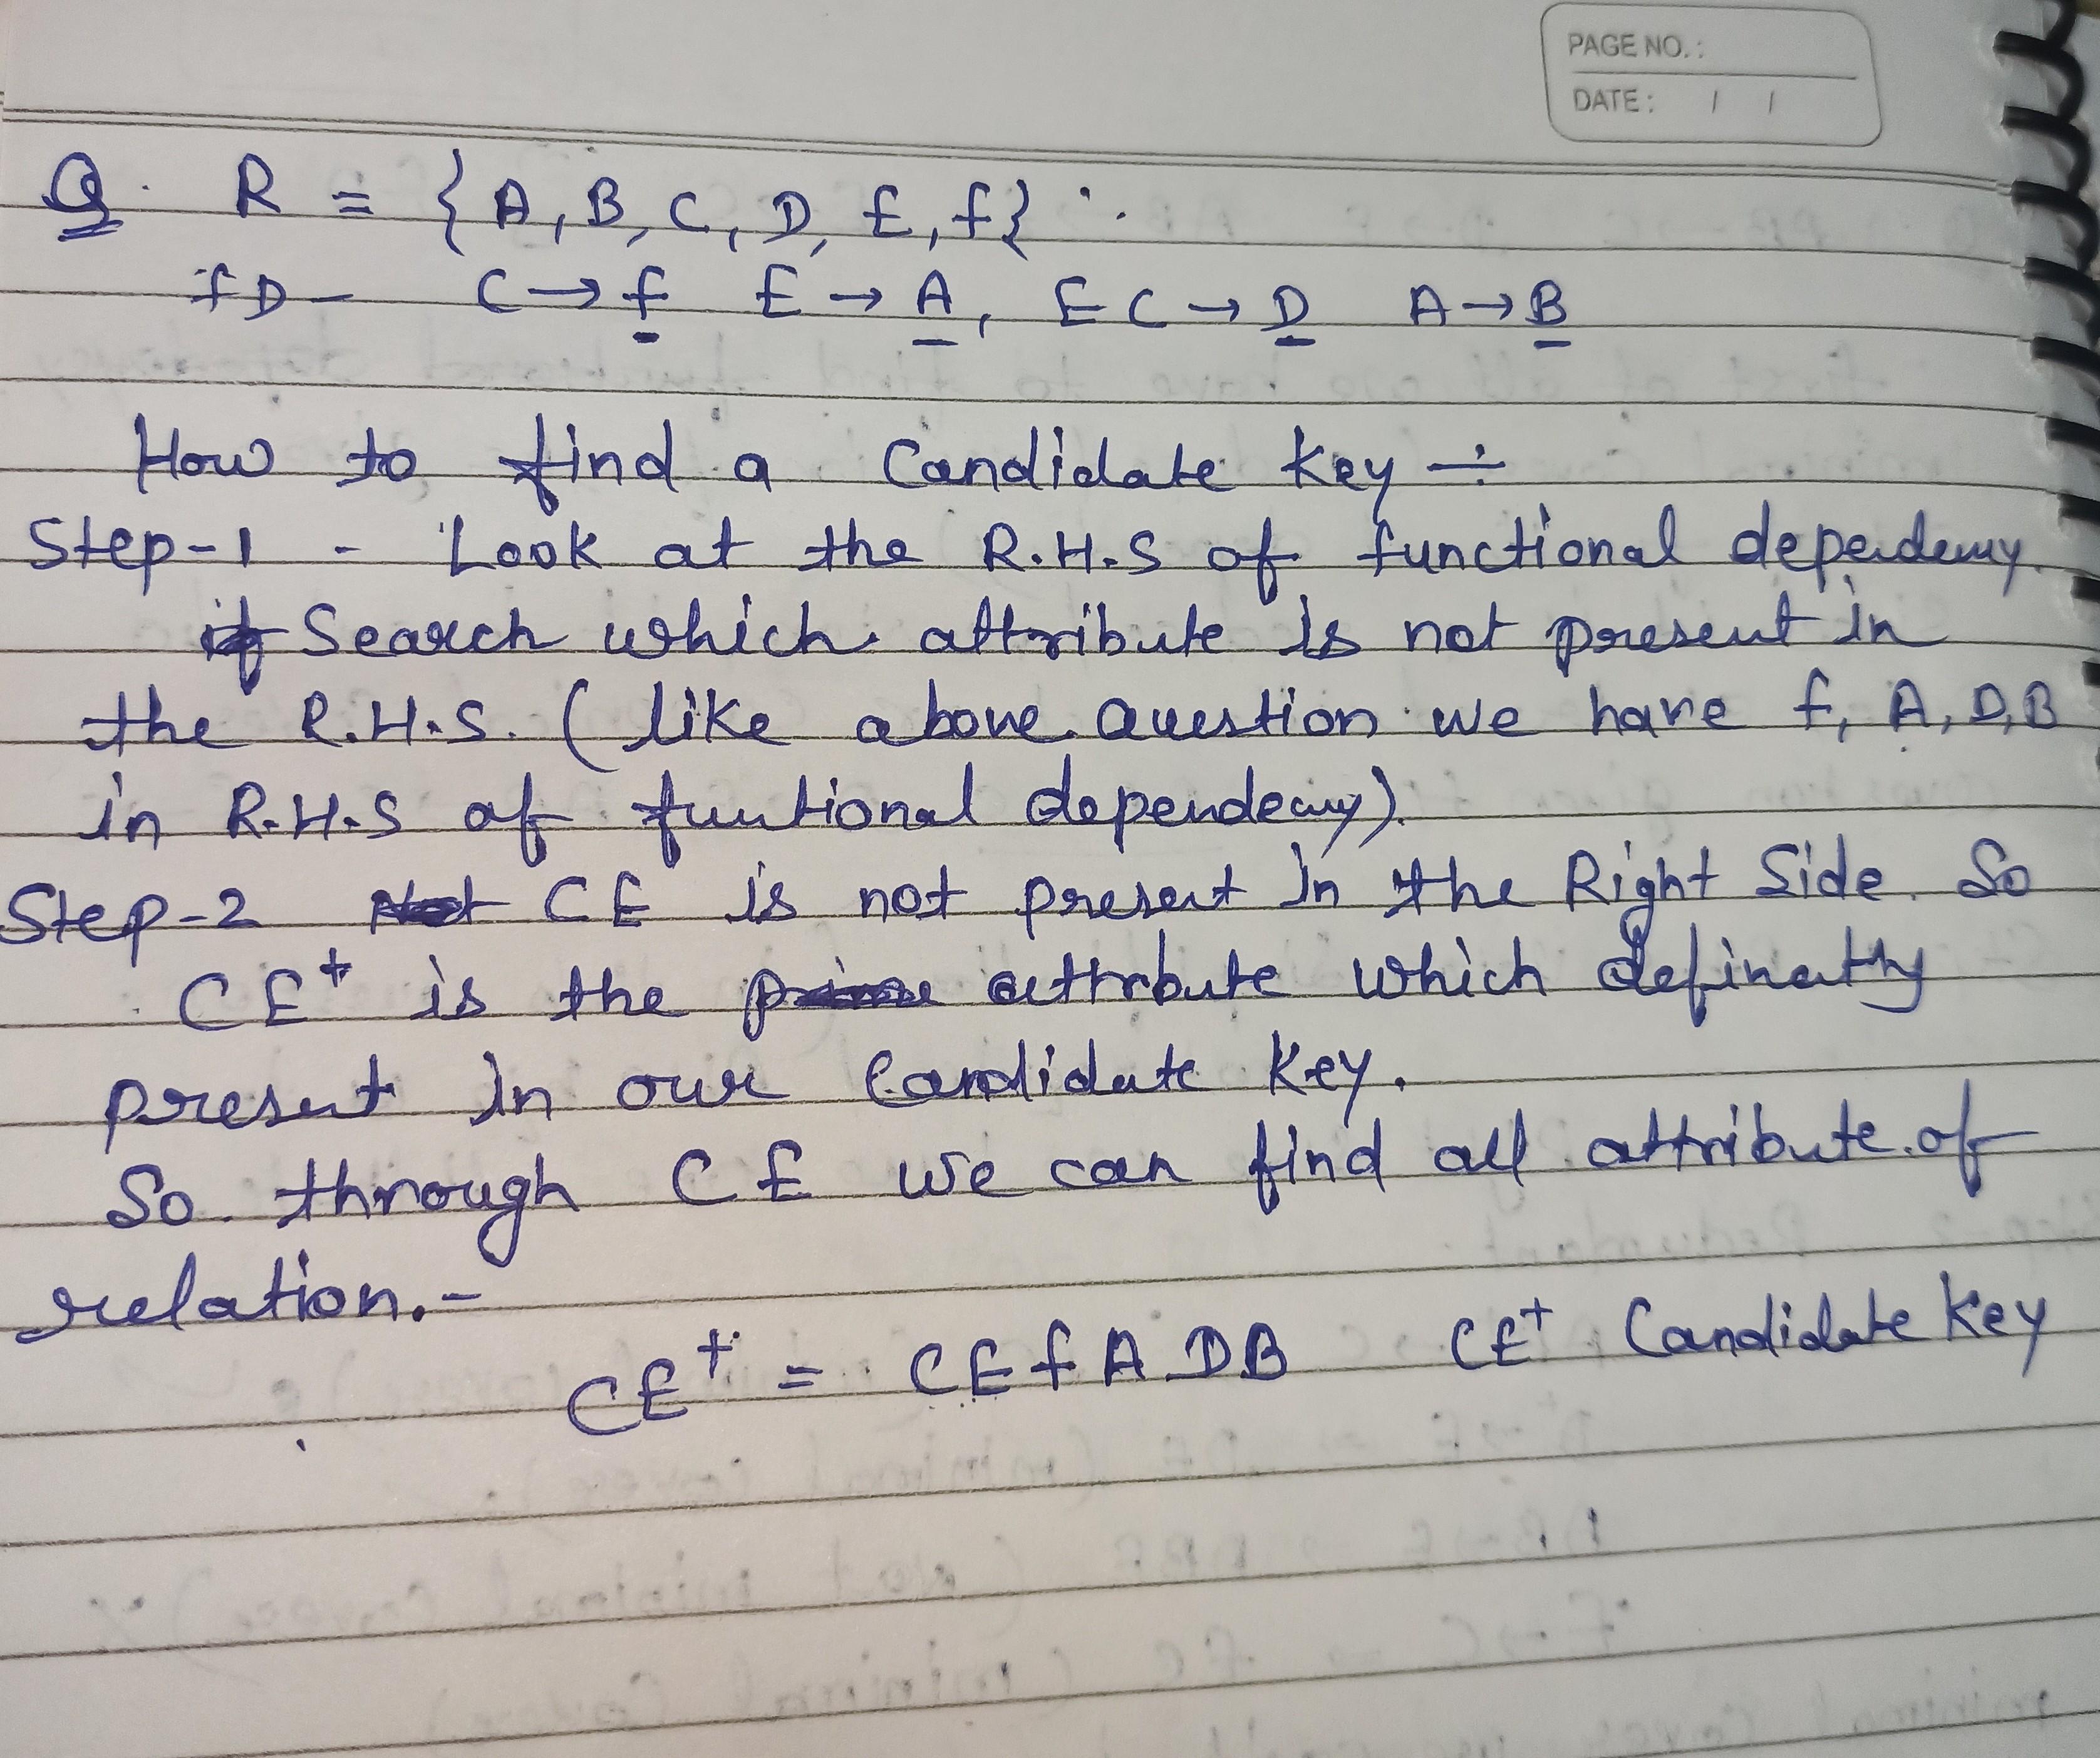 PAGE NO.:
DATE: / /
Q. R = { A, B, C, D, E, f} :.
fD - C → f E → A, EC → D A → B
How to find a Candidate key ÷
Step-1 - Look at the R.H.S of functional dependency.
if Search which attribute is not present in
the R.H.S. ( like above Question we have f, A, D, B
in R.H.S of funtional dependency).
Step-2 Not CE is not present in the Right Side. So
CE⁺ is the prime attrbute which definatly
present in our Candidate key.
So through CE we can find all attribute of
relation.-
CE⁺ = CEfADB CE⁺ Candidate key